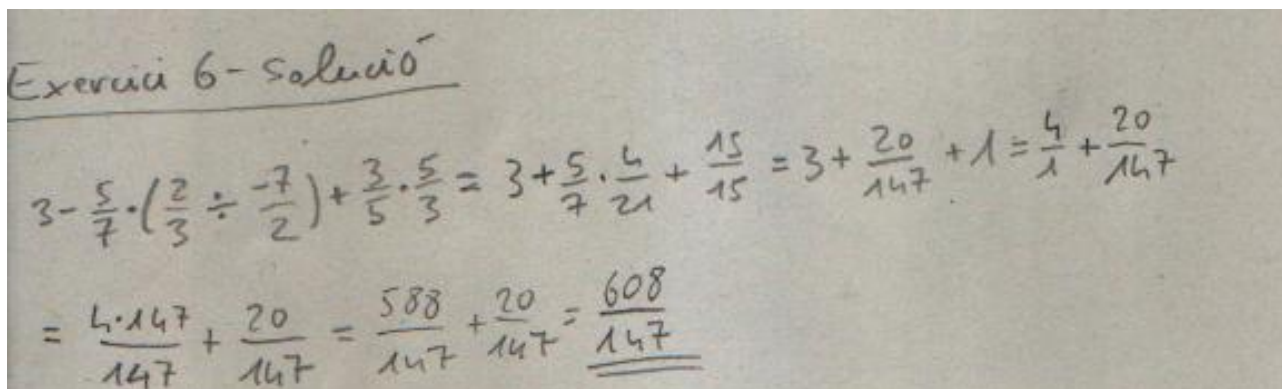 Exercici 6 - Solució
3 - 5/7 · (2/3 ÷ -7/2) + 3/5 · 5/3 = 3 + 5/7 · 4/21 + 15/15 = 3 + 20/147 + 1 = 4/1 + 20/147
= 4·147/147 + 20/147 = 588/147 + 20/147 = 608/147